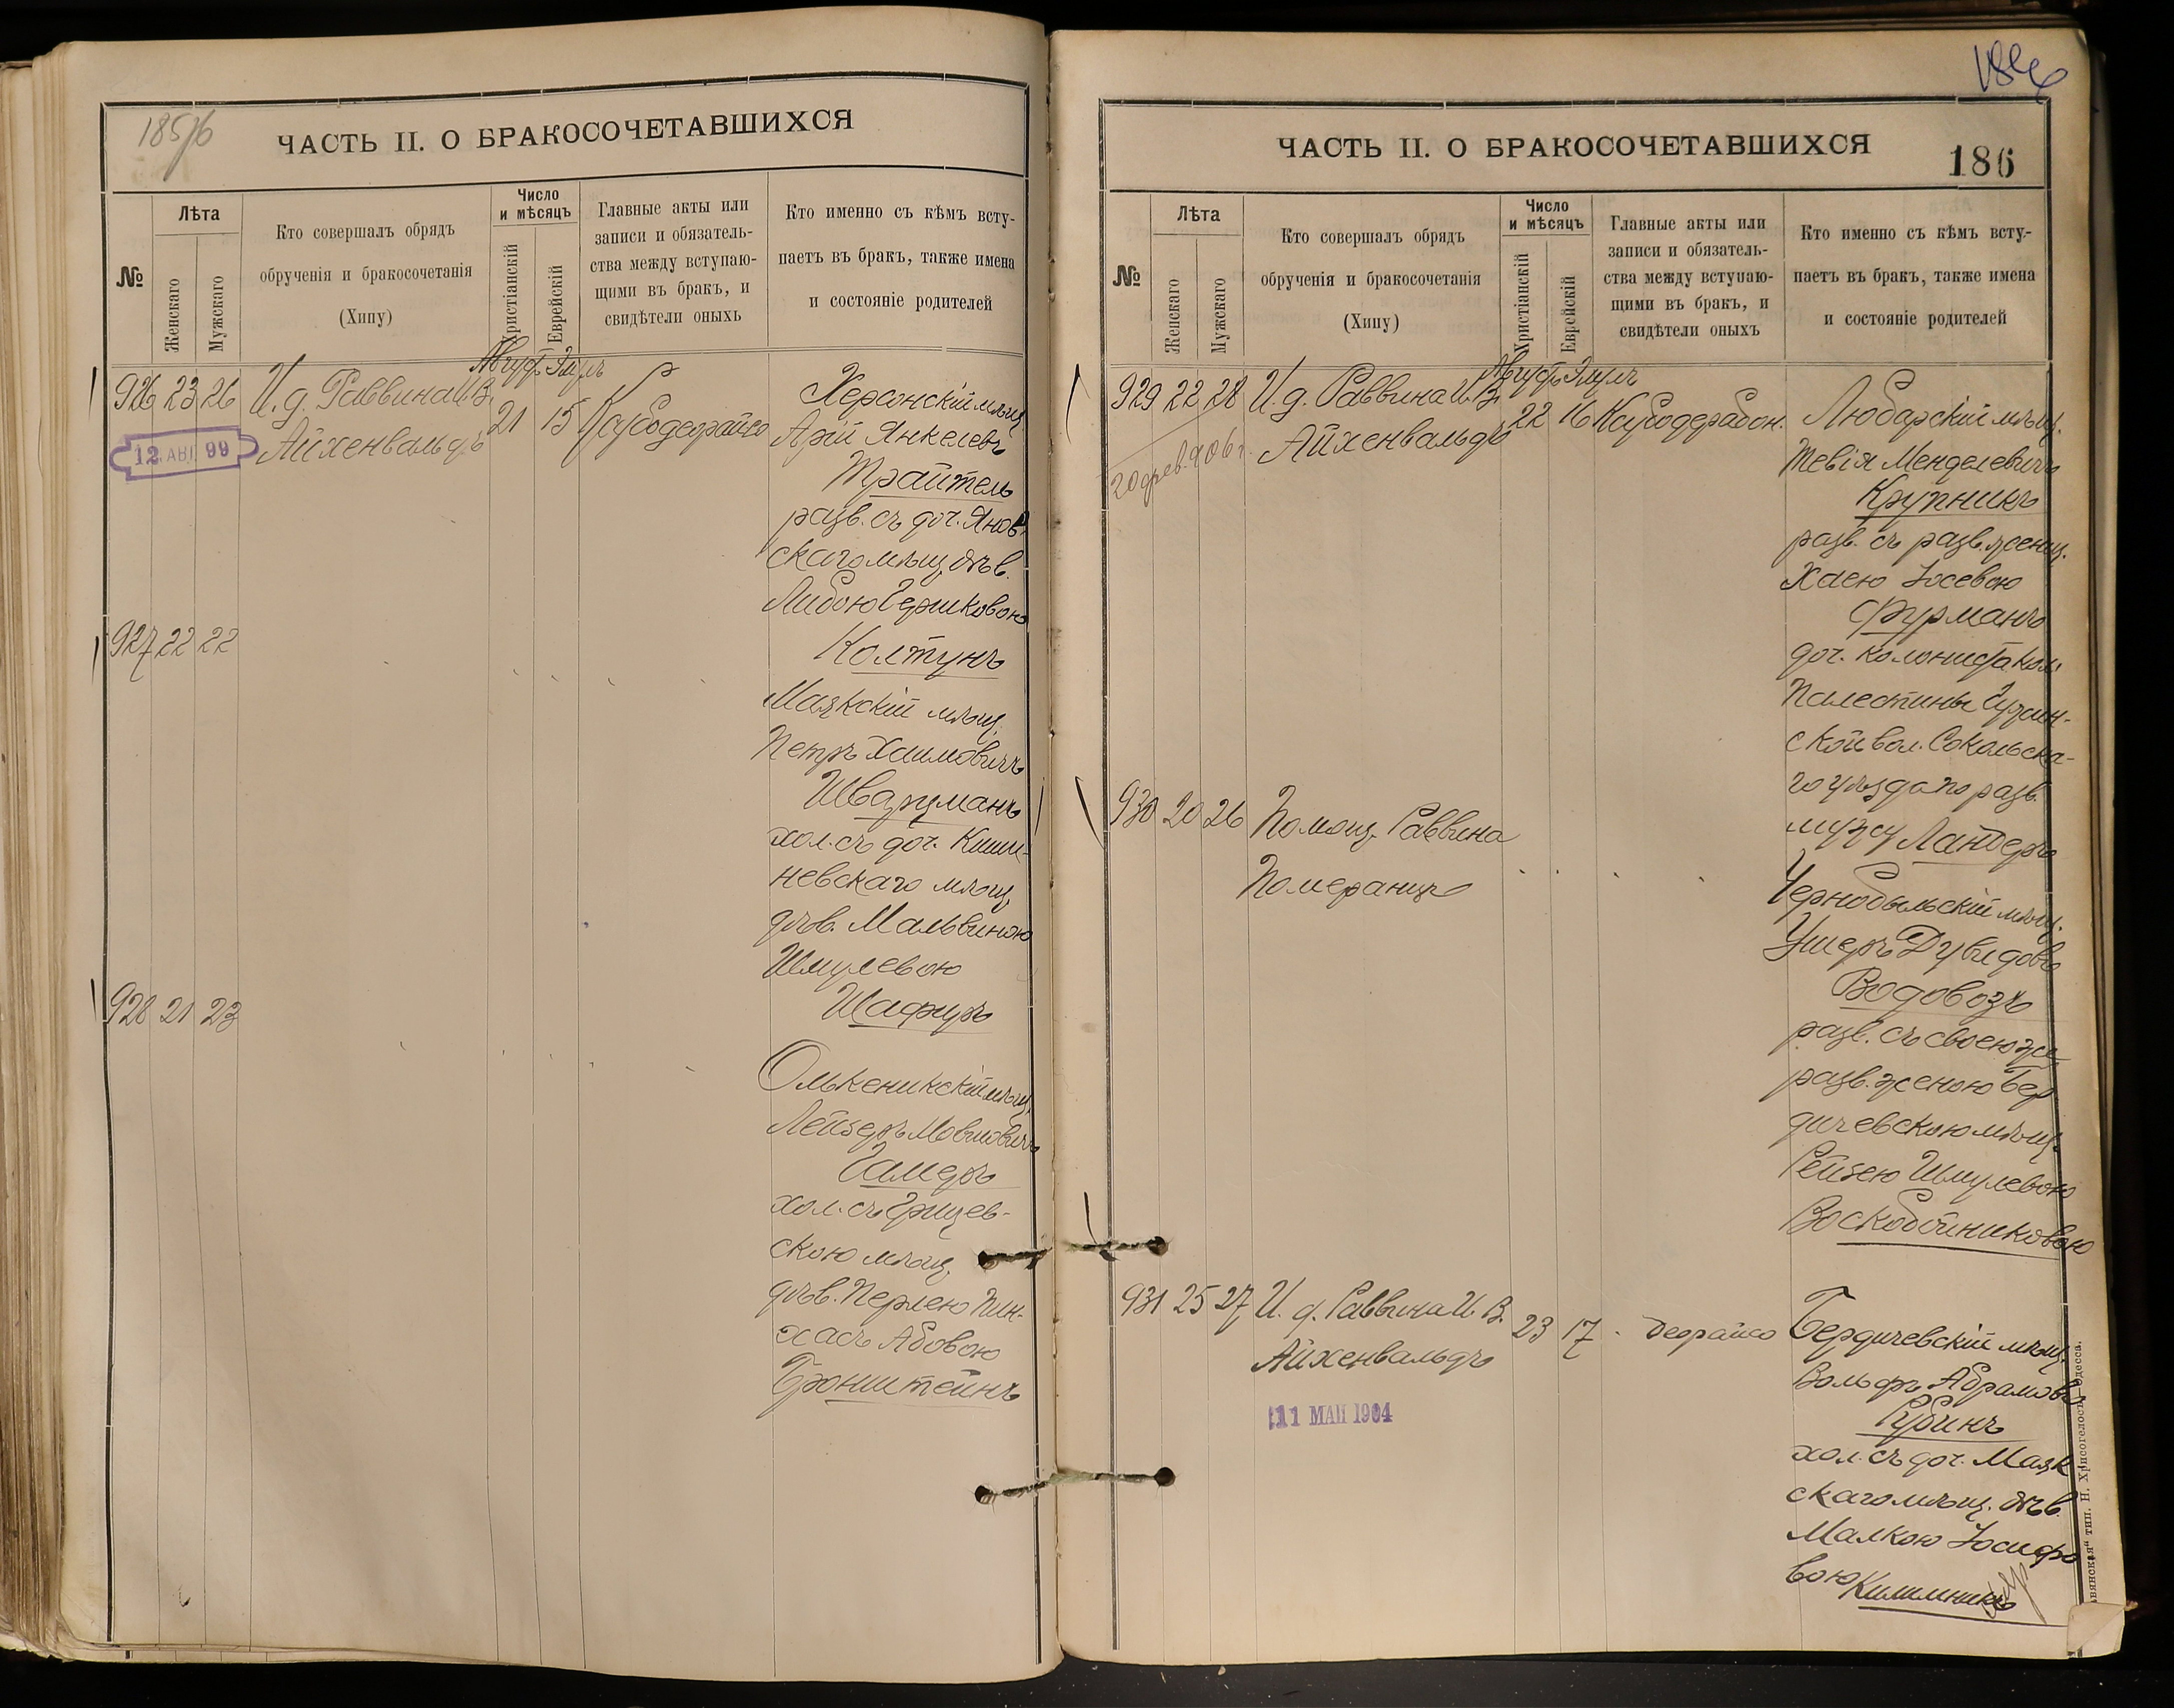 185/6
ЧАСТЬ II. О БРАКОСОЧЕТАВШИХСЯ
№
Лѣта
Женскаго
Мужскаго
Кто совершалъ обрядъ
обрученія и бракосочетанія
(Хипу)
Число
и мѣсяцъ
Христіанскій
Еврейскій
Главные акты или
записи и обязатель-
ства между вступаю-
щими въ бракъ, и
свидѣтели оныхъ
Кто именно съ кѣмъ всту-
паетъ въ бракъ, также имена
и состояніе родителей
926 23 26
И. д. Раввина И. В.
Айхенвальдъ
12 АВГ 99
Авгус. Элулъ
21 15
Херсонскій мѣщ.
Арій Янкелевъ
Трайтель
разв. съ доч. Янов
скаго мѣщ. дѣв.
Либою Гершковою
Колтунъ
927 22 22
Маякскій мѣщ.
Петръ Хаимовичъ
Шварцманъ
хол. съ доч. Киши-
невскаго мѣщ.
дѣв. Мальвиною
Шмулевою
Шафиръ
928 21 23
Олькеникскій мѣщ.
Лейзеръ Мовшовичъ
хол. съ Грицев-
скою мѣщ.
дѣв. Перлею Пин-
хасъ Абовою
Бронштейнъ
ЧАСТЬ II. О БРАКОСОЧЕТАВШИХСЯ
186
№
Лѣта
Женскаго
Мужскаго
Кто совершалъ обрядъ
обрученія и бракосочетанія
(Хипу)
Число
и мѣсяцъ
Христіанскій
Еврейскій
Главные акты или
записи и обязатель-
ства между вступаю-
щими въ бракъ, и
свидѣтели оныхъ
Кто именно съ кѣмъ всту-
паетъ въ бракъ, также имена
и состояніе родителей
929 22 28
И. д. Раввина И. В.
Айхенвальдъ
Август. Элулъ
22 16
Любарскій мѣщ.
Тевія Менделевичъ
Крупникъ
разв. съ разв. женщ.
Хаею Іосевою
Фурманъ
доч. колониста кол.
Палестины
ской вол. Сокольска-
го уѣзда по разв.
мужу Ландеръ
930 20 26
Помощ. Раввина
Померанцъ
Чернобыльскій мѣщ.
Ушеръ Дувидовъ
Водовозъ
разв. съ своею же
разв. женою Бер
дичевскою мѣщ.
Рейзею Шмулевою
Воскобойниковою
931 25 27
И. д. Раввина И. В.
Айхенвальдъ
11 МАЙ 1904
23 17
Деорайсо
Бердичевскій мѣщ.
Вольфъ Абрамовъ
Рубинъ
хол. съ доч. Маяк
скаго мѣщ. дѣв.
Малкою Іосифо
вою Килимникъ
тип. Н. Хрисогелосъ, Одесса.